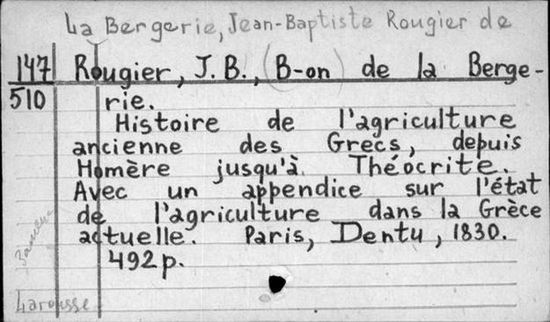 La Bergerie, Jean-Baptiste Rougier de
147 Rougier, J. B., (B-on) de la Berge-
510 rie.
Histoire de l'agriculture
ancienne des Grecs, depuis
Homère jusqu'à Théocrite.
Avec un appendice sur l'état
de l'agriculture dans la Grèce
actuelle. Paris, Dentu, 1830.
492 p.
Larousse